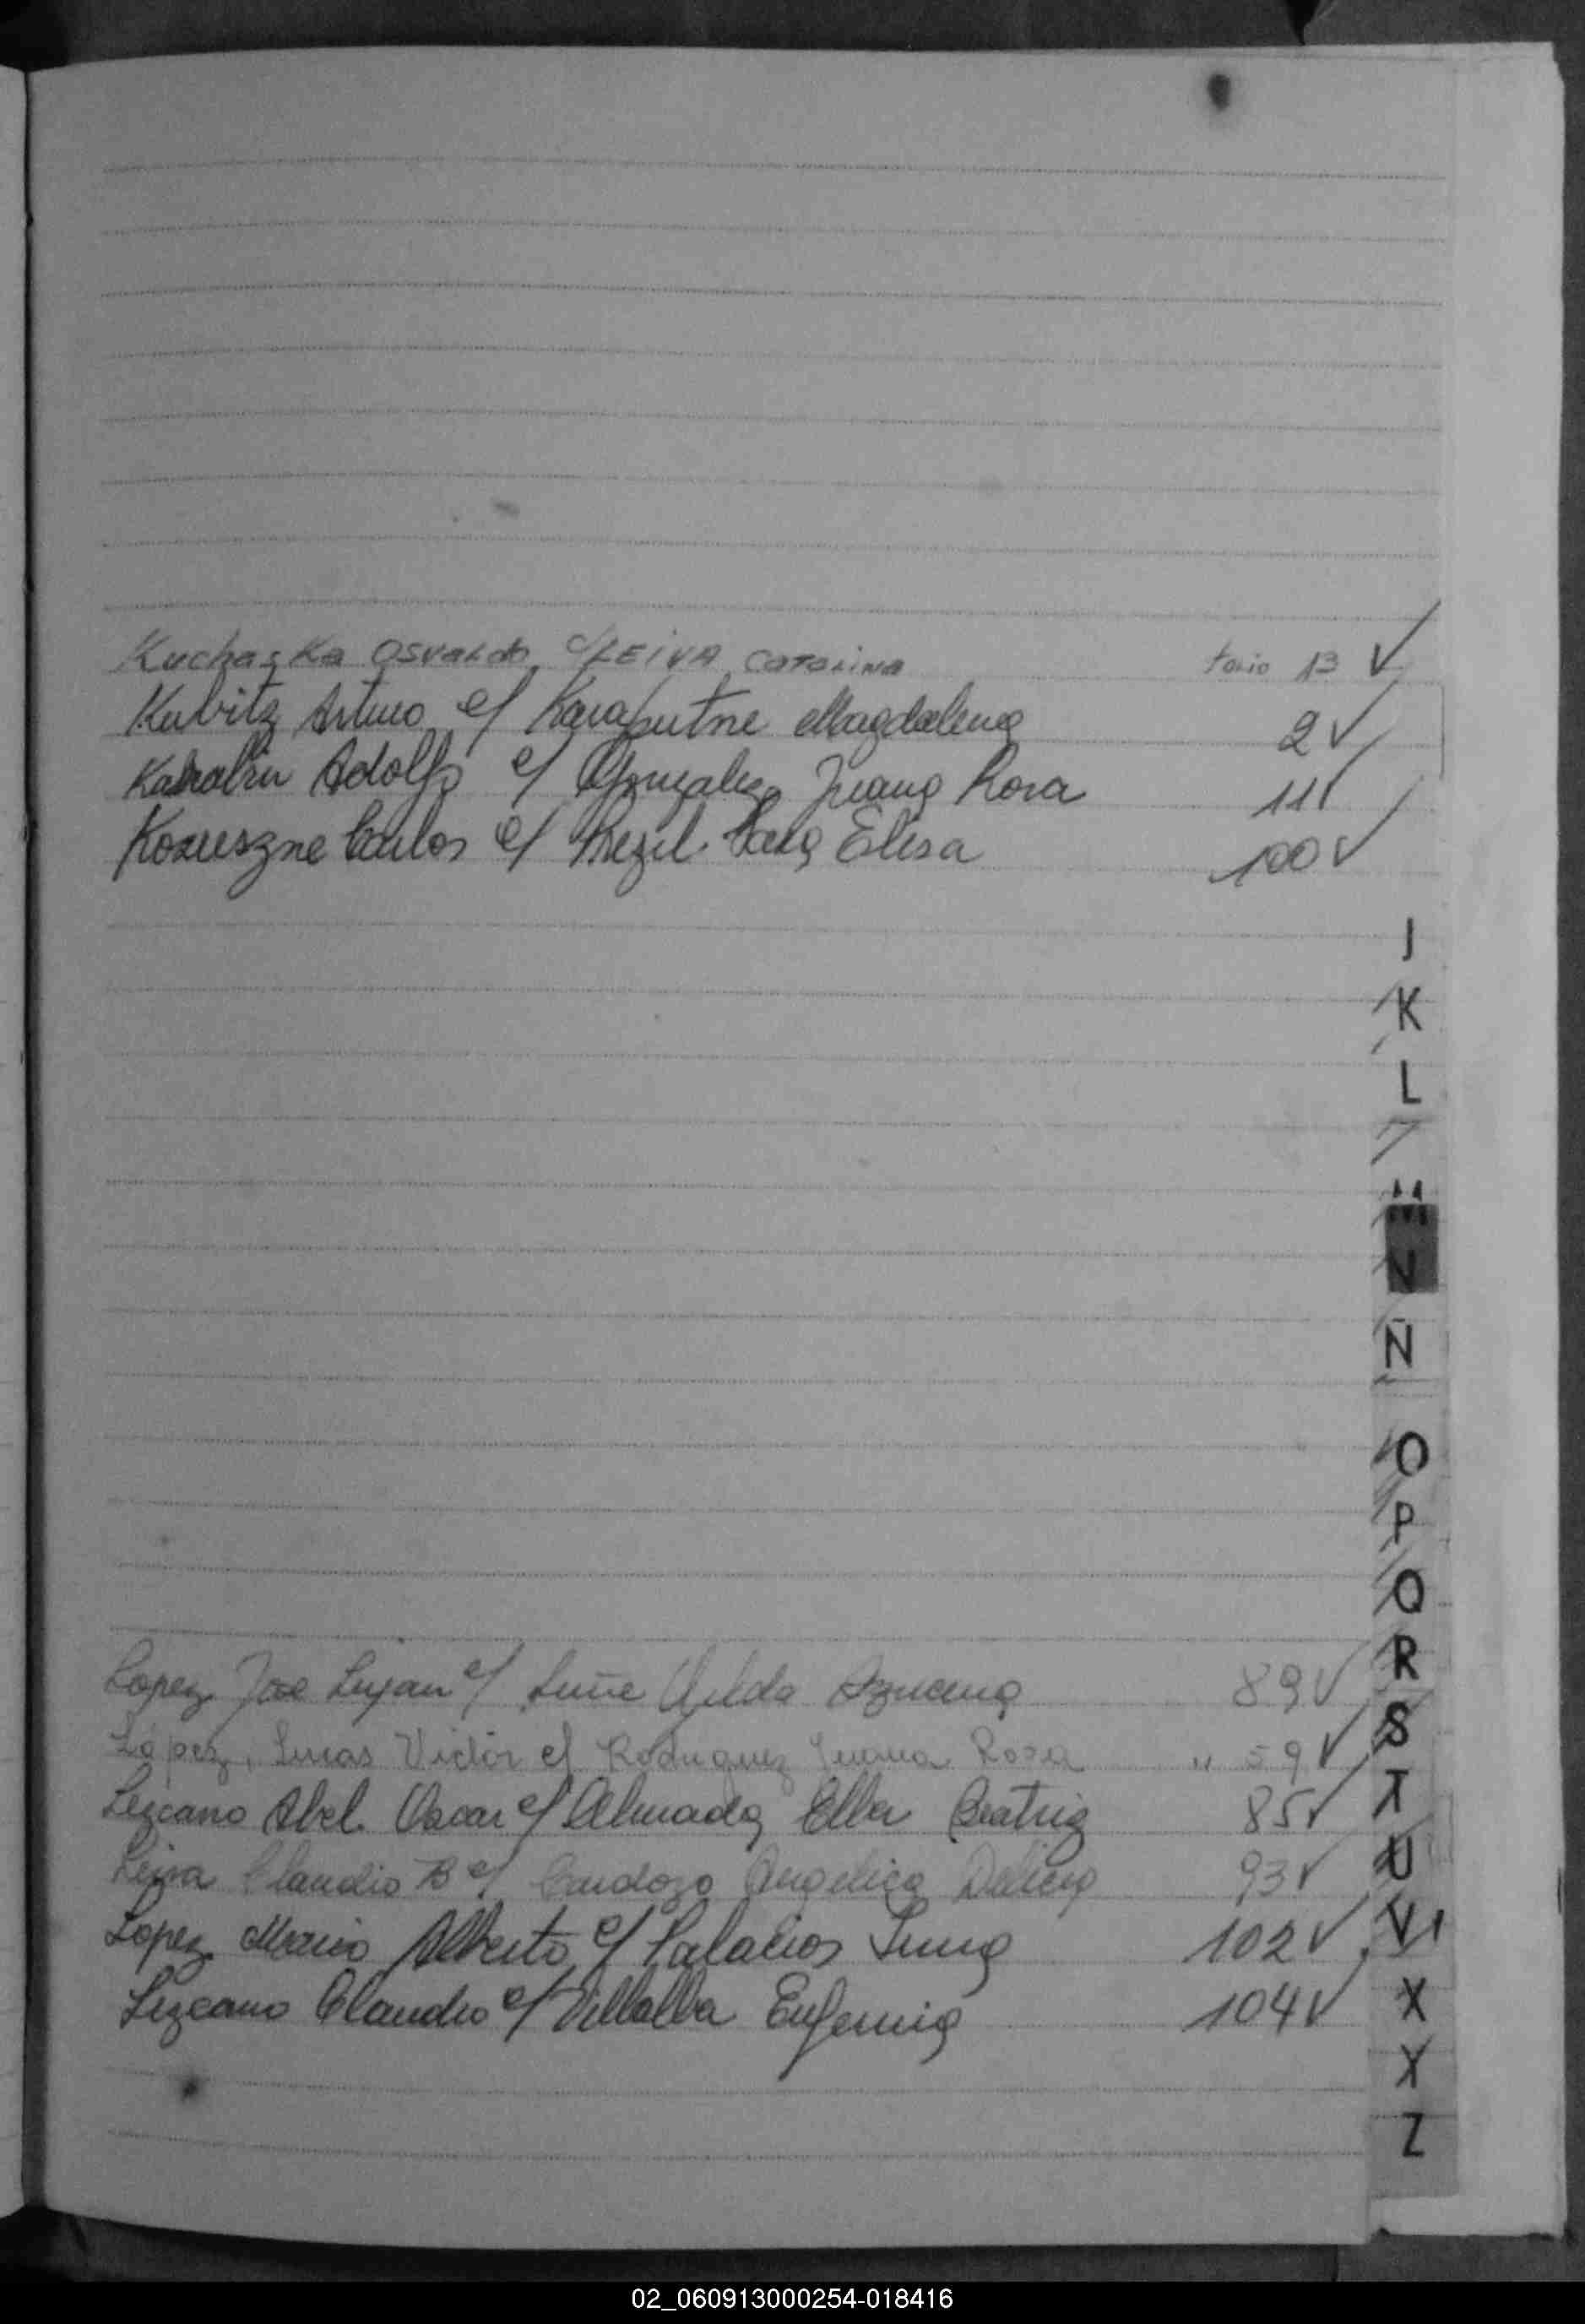 Kuchaska Osvaldo c/ LEIVA Catalina folio 13 ✓
Kubitz Arturo c/ Karaputne Magdalena 2 ✓
Adolfo c/ Gonzalez Juana Rosa 11 ✓
Koxueszne Carlos c/ Sara Elisa 100 ✓
J
K
L
M
N
Ñ
O
P
Q
R
S
T
U
V
X
Y
Z
Lopez Jose Lujan c/ Hilda Azucena 89 ✓
López, Lucas Victor c/ Rodriguez Juana Rosa " 59 ✓
Lezcano Abel Oscar c/ Almada Elba Beatriz 85 ✓
Leiva Claudio B c/ Cardozo Angelica Delicia 93 ✓
Lopez Mario Alberto c/ Palacios Juana 102 ✓
Lezcano Claudio c/ Villalba Eufemia 104 ✓
02_060913000254-018416